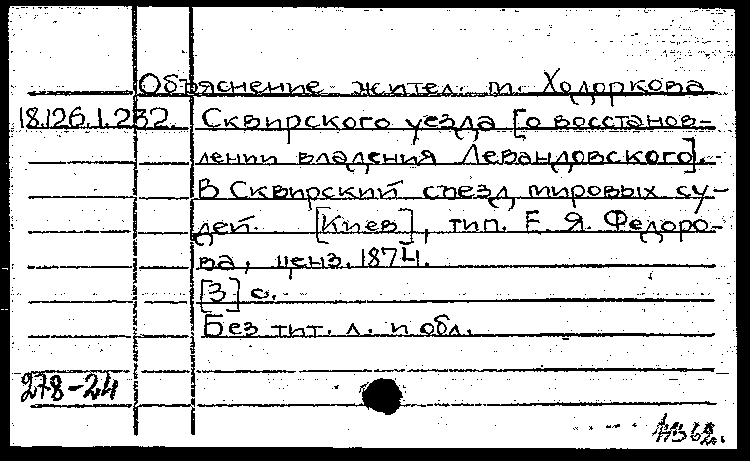 Объяснение жител. м. Ходоркова
18.126.1.232. Сквирского уезда [о восстанов-
лении владения Левандовского].
В Сквирский съезд мировых су-
дей. [Киев], тип. Е. Я. Федоро-
ва, ценз. 1874.
[3] с.
Без тит. л. и обл.
278-24